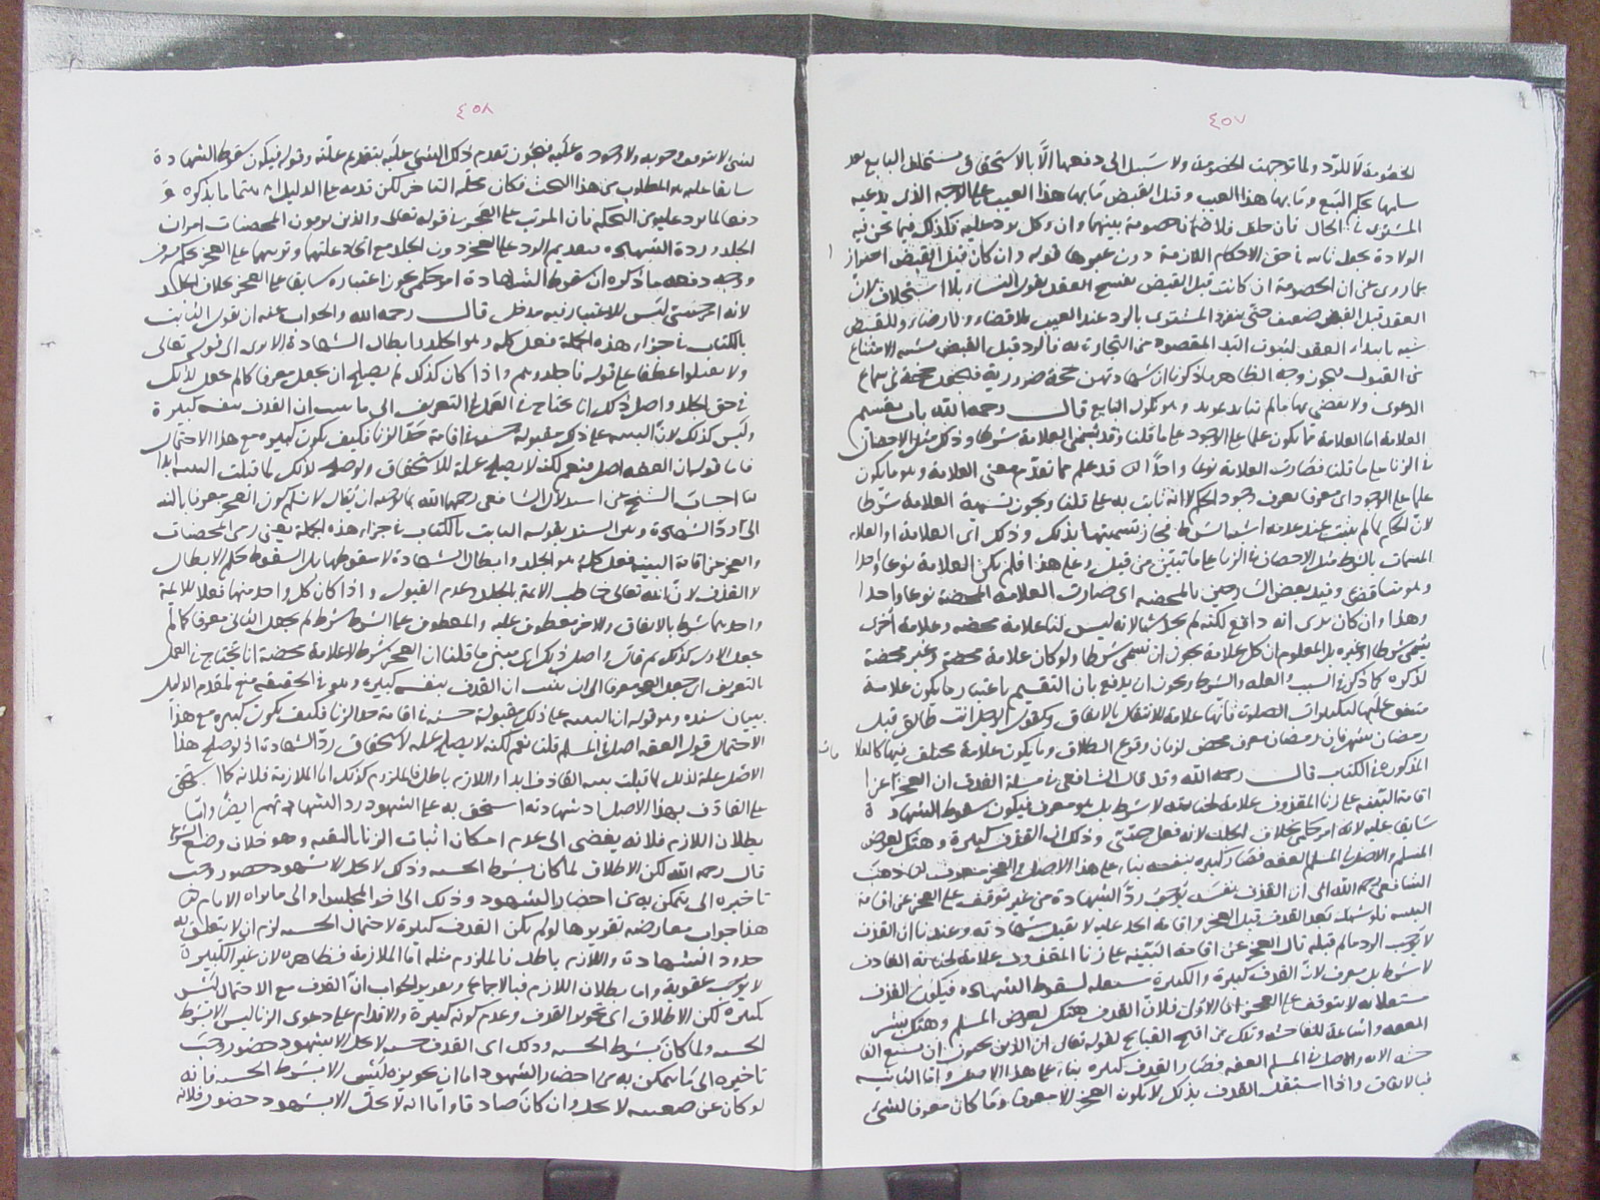 ٤٥٧
الخصومة لا للرد ولما توجهت الخصومة ولا سبيل الى دفعها الا بالاستحلاف يستحلف البايع بعد
سلمها بحكم البيع وما بها هذا العيب وقبل القبض ما بها هذا العيب على الوجه الذي يدعيه
المشتري في الحال فان حلف فلا خصومة بينهما وان نكل يرد عليه فكذلك فيما نحن فيه
الولادة يجعل ثابتا في حق الاحكام اللازمة دون غيرها قوله وان كان قبل القبض احتراز
عما روى عن ان الخصومة ان كانت قبل القبض يفسخ العقد بقول النساء بلا استحلاف لان
العقد قبل القبض ضعيف حتى ينفرد المشتري بالرد عند العيب بلا قضاء ولا رضاء وللقبض
شبه بابتداء العقد لثبوت اليد المقصود من التجارات به فالرد قبل القبض يشبه الامتناع
عن القبول وجه الظاهر ما ذكرنا ان شهادتهن حجة ضرورية فيجعل حجة في سماع
الدعوى ولا يقضي بها ما لم تتايد بمويد وهو نكول البايع قال رحمه الله باب تقسيم
العلامة اما العلامة ما يكون علما على الوجود على ما قلنا وقد يسمى العلامة شرطا وذلك مثل الاحصان
في الزنا على ما قلنا فصارت العلامة نوعا واحدا قد علم مما تقدم معنى العلامة وهو ما يكون
علما على الوجود اي معرفا يعرف وجود الحكم لا انه ثابت به على ما قلنا ويجوز تسمية العلامة شرطا
لان الحكم لما لم يثبت عند عدمه اشبه الشرط فجاز تسميتها بذلك وذلك اي العلامة او العلامة
المسمات بالشرط مثل الاحصان في الزنا على ما تبين من قبل وعلى هذا فلم يكن العلامة نوعا واحدا
وهو تناقض وقيد بعض الشارحين بالمحضة اي فصارت العلامة المحضة نوعا واحدا
وهذا وان كان يرى انه دافع لكنه لم يحل شيا لانه ليس لنا علامة محضة وعلامة اخرى
يسمى شرطا او غيره بل المعلوم ان كل علامة يجوز ان يسمى شرطا ولو كان علامة محضة وغير محضة
لذكره كما ذكر في السبب والعلة والشرط ويجوز ان يدفع بان التقسيم باعتبار ما يكون علامة
متفق عليها كتكبيرات الصلوة فانها علامة للانتقال بالاتفاق وكقول الرجل انت طالق قبل
رمضان بشهر فان رمضان معرف محض لزمان وقوع الطلاق وما يكون علامة مختلف فيها كالعلامات
المذكورة في الكتاب قال رحمه الله وقد قال الشافعي في مسئلة القذف ان العجز عن
اقامة البينة على زنا المقذوف علامة لجنايته لا شرط بل هو معرف فيكون سقوط الشهادة
سابقا عليه لانه امر حكمي بخلاف الجلد لانه فعل حسي وذلك ان القذف كبيرة وهتك لعرض
المسلم والاصل في المسلم العفة فصار كبيرة بنفسه بناء على هذا الاصل والعجز معرف لما ذهب
الشافعي رحمه الله الى ان القذف بنفسه يوجب رد الشهادة من غير توقف على العجز عن اقامة
البينة فلو شهد بعد القذف قبل العجز واقامة الحد عليه لا تقبل شهادته وعندنا ان القذف
لا يوجب الرد ما لم قبله قال العجز عن اقامة البينة على زنا المقذوف علامة لجناية القاذف
لا شرط بل معرف لان القذف كبيرة والكبيرة مستقلة لسقوط الشهادة فيكون القذف
مستقلا به لا يتوقف على العجز اما الاول فلان القذف هتك لعرض المسلم وهتك ستر
العفة واشاعة للفاحشة وذلك من اقبح القبايح لقوله تعالى ان الذين يحبون ان تشيع الفا
حشة الاية والاصل في المسلم العفة فصار القذف كبيرة بناء على هذا الاصل واما الثانية
فبالاتفاق واذا استقل القذف بذلك لا يكون العجز الا معرفا وما كان معرفا لشئ
٤٥٨
لشئ لا يتوقف وجوبه ولا وجوده عليه فيجوز تقدم ذلك الشئ عليه بتقدم علته وقوله فيكون سقوط الشهادة
سابقا عليه هو المطلوب من هذا البحث فكان محله التاخر لكن قدمه على الدليل اهتماما بذكره و
دفعا لما يرد عليه من التحكم فان المرتب على العجز في قوله تعالى والذين يرمون المحصنات امران
الجلد ورد الشهادة فتقديم الرد على العجز دون الجلد مع اتحاد علتهما وترتبهما على العجز تحكم صرف
ووجه دفعه ما ذكره ان سقوط الشهادة امر حكمي يجوز اعتباره سابقا على العجز بخلاف الجلد
لانه امر حسي ليس للاعتبار فيه مدخل قال رحمه الله والجواب عنه ان نقول الثابت
بالكتاب في جزاء هذه الجملة فعل كله وهو الجلد وابطال الشهادة الا يرى الى قوله تعالى
ولا تقبلوا عطفا على قوله فاجلدوهم واذا كان كذلك لم يصلح ان يجعل معرفا كما لم يجعل كذلك
في حق الجلد واصل ذلك انا نحتاج في العمل بالتعريف الى ما يثبت ان القذف بنفسه كبيرة
وليس كذلك لان البينة على ذلك مقبولة حسبة في اقامة حد الزنا فكيف يكون كبيرة مع هذا الاحتمال
فاما قوله ان العفة اصل فنعم لكنه لا يصلح علة للاستحقاق ولو صلح لذلك لما قبلت البينة ابدا
لما اجاب الشيخ عن استدلال الشافعي رحمهما الله بما توجيهه ان يقال لا نسلم كون العجز معرفا بالنسبة
الى رد الشهادة وهو السند بقوله الثابت بالكتاب في جزاء هذه الجملة يعني رمي المحصنات
والعجز عن اقامة البينة فعل كله هو الجلد وابطال الشهادة لا سقوطها بل السقوط حكم الابطال
لا القذف لان الله تعالى خاطب الائمة بالجلد وعدم القبول واذا كان كل واحد منهما فعلا للائمة
واحدهما شرط بالاتفاق والاخر معطوف عليه والمعطوف على الشرط شرط لم يجعل الثاني معرفا كما لم
يجعل الاول كذلك ثم قال واصل ذلك اي مبنى ما قلنا ان العجز شرط لا علامة محضة انا نحتاج في العمل
بالتعريف اي جعل العجز معرفا الى ان يثبت ان القذف بنفسه كبيرة وهو في الحقيقة منع لمقدم الدليل
ببيان سنده وهو قوله ان البينة على ذلك مقبولة حسبة في اقامة حد الزنا فكيف يكون كبيرة مع هذا
الاحتمال قوله العفة اصل في المسلم قلنا نعم لكنه لا يصلح علة لاستحقاق رد الشهادة اذ لو صلح هذا
الاصل علة لذلك لما قبلت بينة القاذف ابدا واللازم باطل فالملزوم كذلك اما الملازمة فلانه كما استحق
على القاذف بهذا الاصل رد شهادته استحق به على الشهود رد الشهادة لهم ايضا واما
بطلان اللازم فلانه يفضي الى عدم امكان اثبات الزنا بالبينة وهو خلاف وضع الشرع
قال رحمه الله لكن الاطلاق لما كان بشرط الحسبة وذلك لا يحل الا بشهود حضور وجب
تاخيره الى ما يتمكن به من احضار الشهود وذلك الى اخر المجلس او الى ما يراه الامام
هذا جواب معارضة تقريرها لو لم يكن القذف كبيرة لاحتمال الحسبة لزم ان لا يتعلق به
حد ورد الشهادة واللازم باطل فالملزوم مثله اما الملازمة فظاهرة لان غير الكبيرة
لا يوجب عقوبة واما بطلان اللازم فبالاجماع وتقرير الجواب ان القذف مع الاحتمال ليس
بكبيرة لكن الاطلاق اي تجويز القذف وعدم كونه كبيرة والاقدام على دعوى الزنا ليس الا بشرط
الحسبة ولما كان بشرط الحسبة وذلك اي القذف حسبة لا يحل الا بشهود حضور وجب
تاخيره الى ما يتمكن به من احضار الشهود اما ان تجويزه ليس الا بشرط الحسبة فانه
لو كان عن ضغينة لا يحل وان كان صادقا واما انه لا يحل الا بشهود حضور فلانه